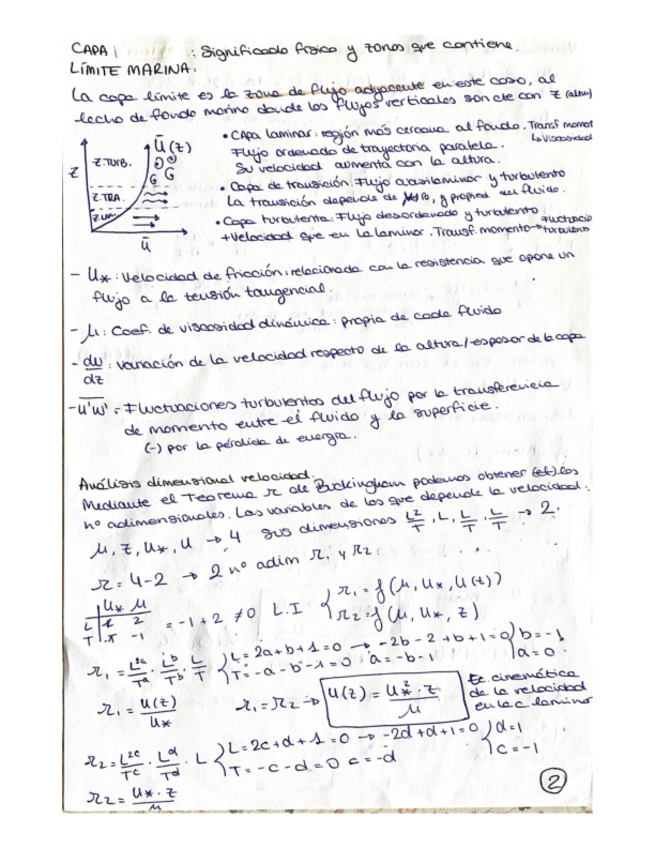 CAPA : Significado físico y zonas que contiene.
LÍMITE MARINA.
La capa límite es la zona de flujo adyacente en este caso, al
lecho de fondo marino donde los flujos verticales son cte con z (altu)
Z
Z.TURB.
Z.TRA.
Z.LAM.
U̅(z)
U̅
• Capa laminar: región más cercana al fondo. Transf moment
↳ Viscosidad
Flujo ordenado de trayectoria paralela.
Su velocidad aumenta con la altura.
• Capa de transición: Flujo cuasilaminar y turbulento
La transición depende de y propied del fluido.
• Capa turbulenta: Flujo desordenado y turbulento
+Velocidad que en la laminar. Transf. momento → fluctuacio turbulens
- U* : Velocidad de fricción: relacionada con la resistencia que opone un
flujo a la tensión tangencial.
- μ: Coef. de viscosidad dinámica: propia de cada fluido
- du/dz : variación de la velocidad respecto de la altura/espesor de la capa
- u'w' = Fluctuaciones turbulentas del flujo por la transferencia
de momento entre el fluido y la superficie.
(-) por la pérdida de energía.
Análisis dimensional velocidad.
Mediante el Teorema π de Buckingham podemos obtener los
nº adimensionales. Las variables de las que depende la velocidad:
μ, z, U*, u → 4 sus dimensiones L²/T, L, L/T, L/T → 2.
π = 4-2 → 2 nº adim π₁ y π₂
U* μ
L 1 2
T -1
= -1+2 ≠0 L.I { π₁ = f(μ, U*, U(z))
π₂ = f(μ, U*, z)
π₁ = L²ᵃ/Tᵃ · Lᵇ/Tᵇ · L/T { L = 2a+b+1=0 → -2b-2+b+1=0 } b=-1
T = -a-b-1=0 a=-b-1 a=0
π₁ = U(z)/U*
π₁ = π₂ → U(z) = U*² · z/μ
Ec cinemática
de la velocidad
en la c laminar
π₂ = L²ᶜ/Tᶜ · Lᵈ/Tᵈ · L { L = 2c+d+1=0 → -2d+d+1=0 } d=1
T = -c-d=0 c=-d c=-1
π₂ = U* · z/μ
2